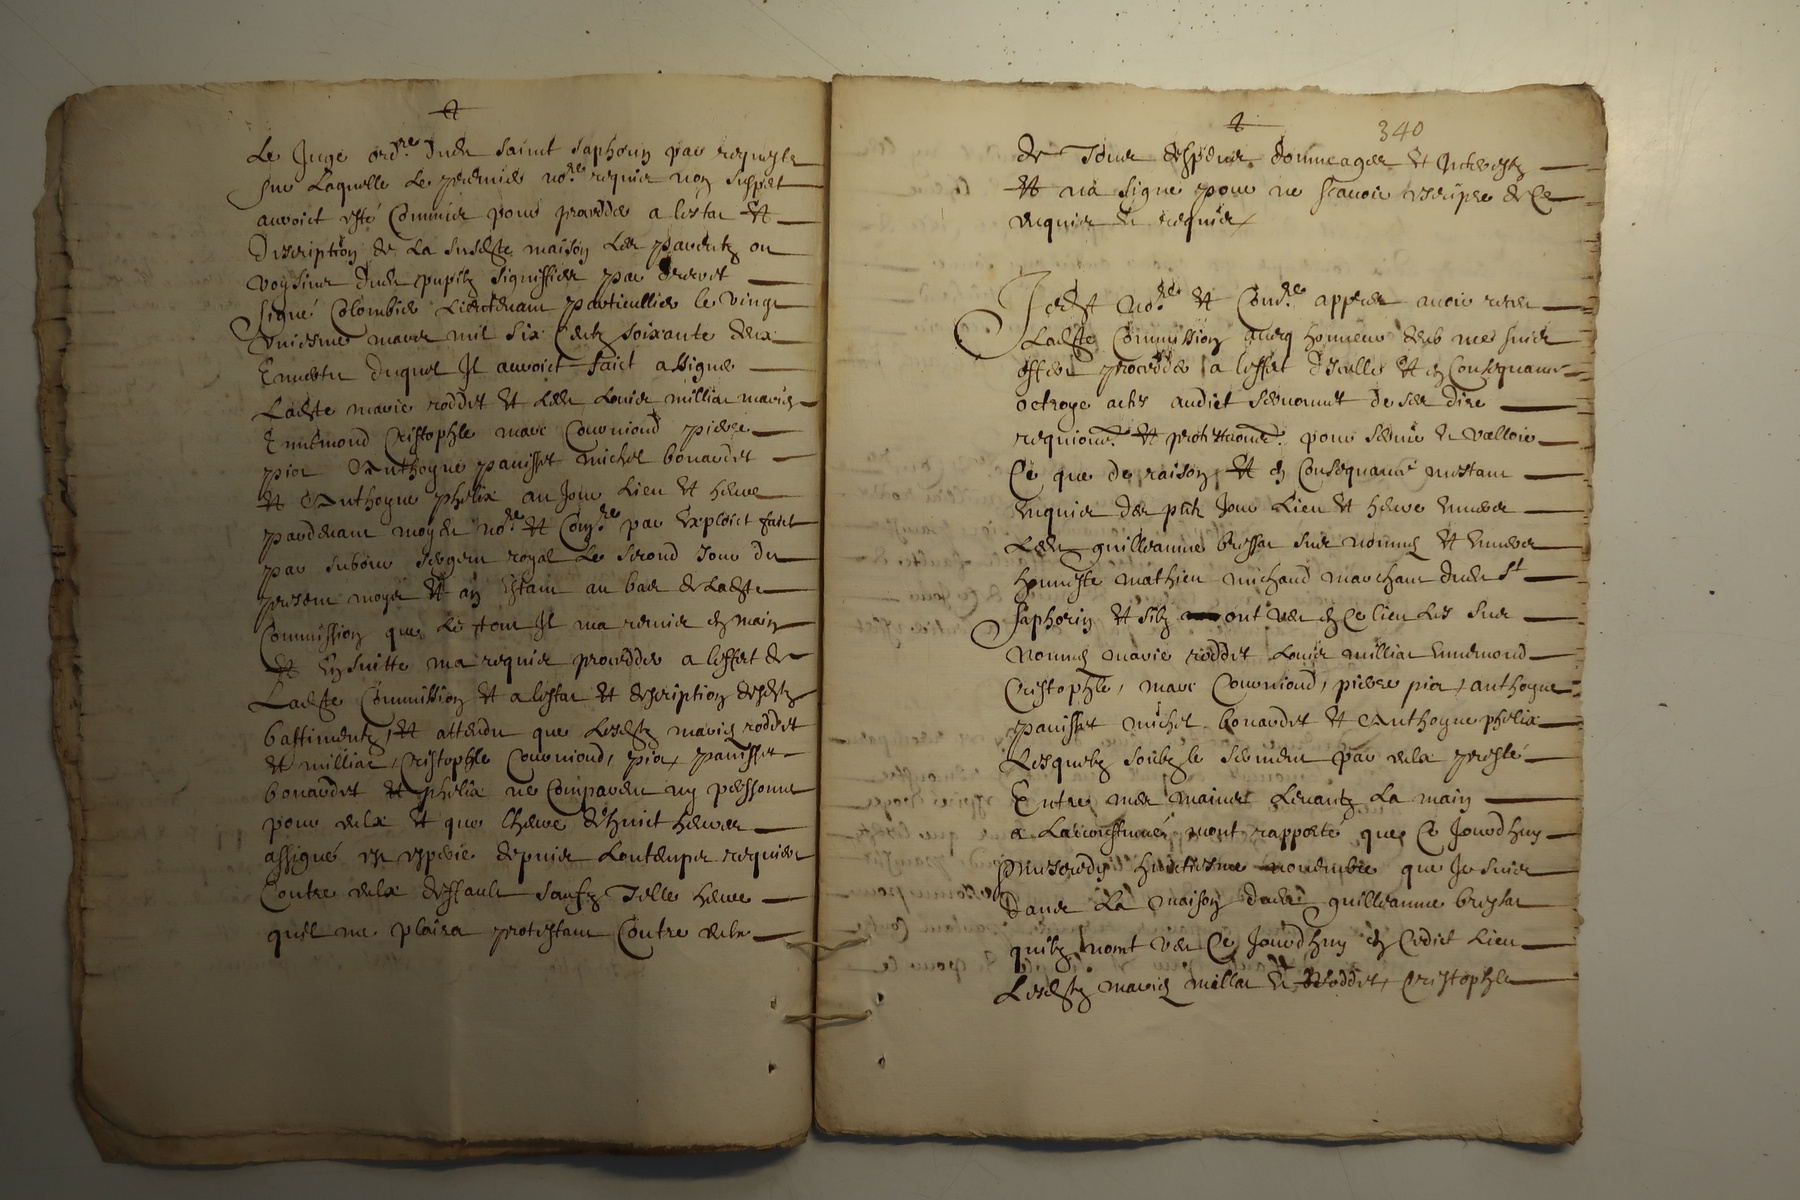 Le Juge ord.re dudt saint saphorin par requeste
sur Laquelle Le premier no.re requis non suspet
auroict esté Commis pour proceddes a lestat Et
Description de La susdte maison Les parentz ou
voysins dudt pupilz signiffies par decret
signé Colombier Lieutenant particullier le vingt
uniesme mars mil six Centz soixante deux
En vertu duquel Il auroict faict assigner
Ladte marie roddet Et Led. Louis milliat mariés
Ennemond Cristophle marc Couvrioud pierre
pior Anthoyne panisset michel bonardet
Et Anthoyne phelix au Jour Lieu Et heure
pardevant moyd. no.re Et Com.re par Exploict faict
par subour sergent royal Le second Jour du
present moys Et an Estant au bas de Ladte
Commission que Le tout Il ma remis En main
Et En suitte ma requis procedder a leffet de
Ladte Commission Et a lestat Et description desdtz
bastimentz, Et attendu que Lesdtz mariés roddet
Et milliat, Cristophle Couvrioud, pior, panisset
bonardet Et phelix ne Comparent ny personne
pour eulx Et que Lheure de huict heures
assigné est expirée depuis Lontemps requiert
Contre eulx deffault saufz Telle heure
quil me plaira protestant Contre eulx
340
de Tous despens dommages Et Interestz
Et na signe pour ne scavoir escripre de Ce
enquis Et requis
Jedt No.re Et Com.re appres avoir receu
Ladte Commission avecq honneur deub me suis
offert procedder a leffet dicelle Et En Consequance
octroye actes audict de ses dire
requions Et protestaons pour servir Et valloir
Ce que de raison, Et En Consequance mestant
enquis des ptz Jour Lieu Et heure Envers
Led. guilleaume bressat sus nommé Et Envers
honneste mathieu michaud marchant dudt St
saphorin Et silz ont veu En Ce lieu Les sus
Nommés marie roddet Louis milliat Ennemond
Cristophle, marc Couvrioud, pierre pior, anthoyne
panisset michel bonardet Et Anthoyne phelix
Lesquelz soubz le serment par eulx presté
Entre mes mains Levantz La main
a Laccoustumée mont rapporté que Ce Jourdhuy
mescredy huictiesme novembre que Je suis
dans La maison dudt guilleaume bressat
quilz nont veu Ce Jourdhuy En Cedict Lieu
Lesdtz mariés millat Et Roddet, Cristophle